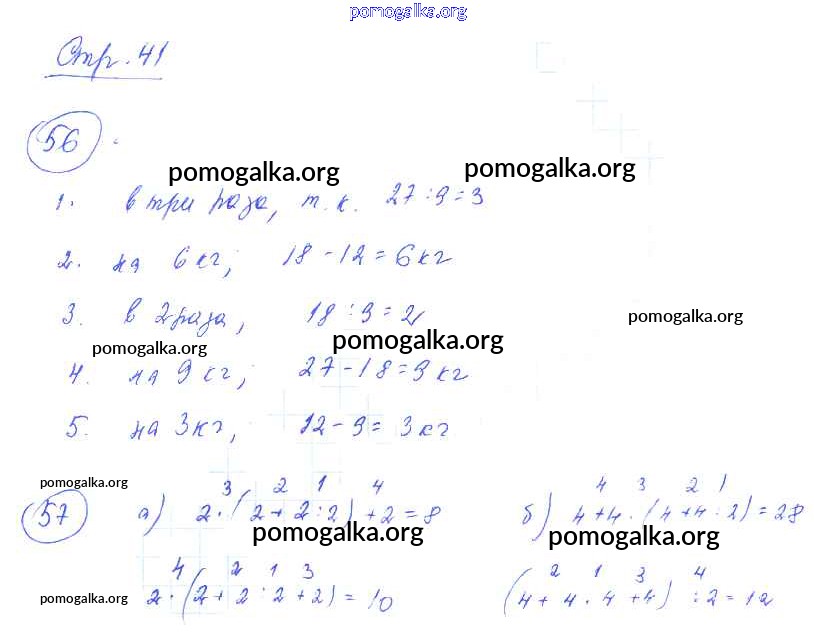 pomogalka.org
Стр. 41
56
pomogalka.org pomogalka.org
1. в три раза, т. к. 27 : 9 = 3
2. на 6 кг; 18 - 12 = 6 кг
3. в 2 раза, 18 : 9 = 2
pomogalka.org
pomogalka.org pomogalka.org
4. на 9 кг; 27 - 18 = 9 кг
5. на 3 кг, 12 - 9 = 3 кг
pomogalka.org 3 2 1 4 4 3 2 1
57 а) 2 · (2 + 2 : 2) + 2 = 8 б) 4 + 4 · (4 + 4 : 2) = 28
pomogalka.org pomogalka.org
4 2 1 3 2 1 3 4
pomogalka.org 2 · (2 + 2 : 2 + 2) = 10 (4 + 4 · 4 + 4) : 2 = 12